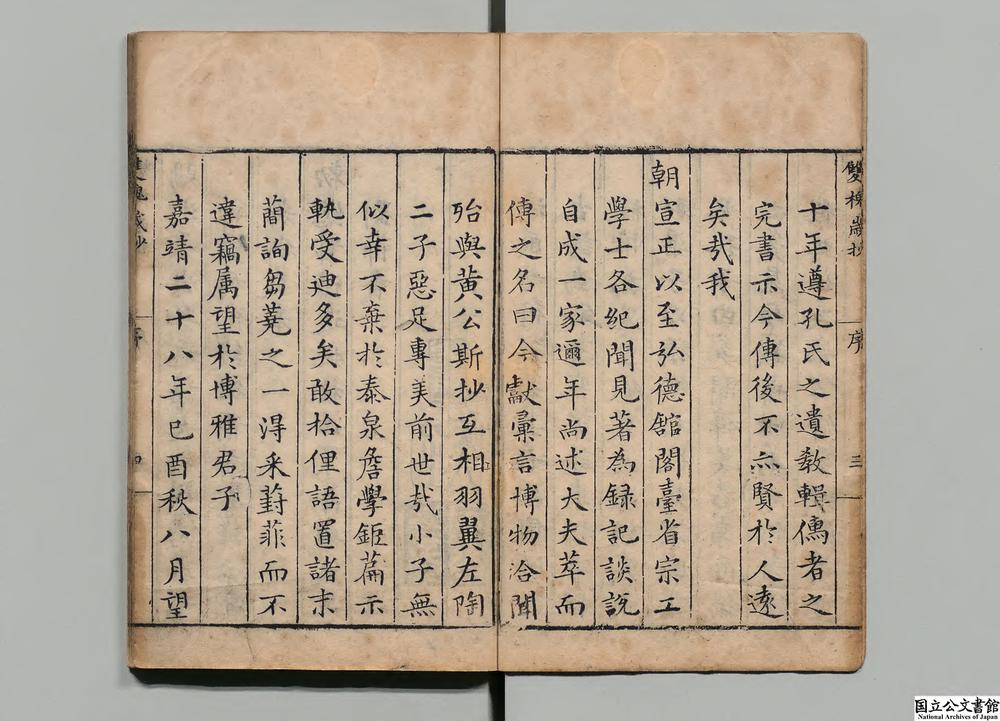 雙槐歲抄
序
三
十年遵孔氏之遺教輯儒者之
完書示今傳後不亦賢於人遠
矣㢤我
朝宣正以至弘德舘閣臺省宗工
學士各紀聞見著為録記談説
自成一家邇年尚述大夫萃而
傳之名曰今獻彙言博物洽聞
殆與黄公斯抄互相羽翼左陶
二子惡足專美前世㢤小子無
似幸不棄於泰泉詹學鉅篇示
軌受迪多矣敢拾俚語置諸末
蕳詢芻蕘之一淂采葑菲而不
違竊属望於博雅君子
嘉靖二十八年己酉秋八月望
雙槐歲抄
序
四
国立公文書館
National Archives of Japan